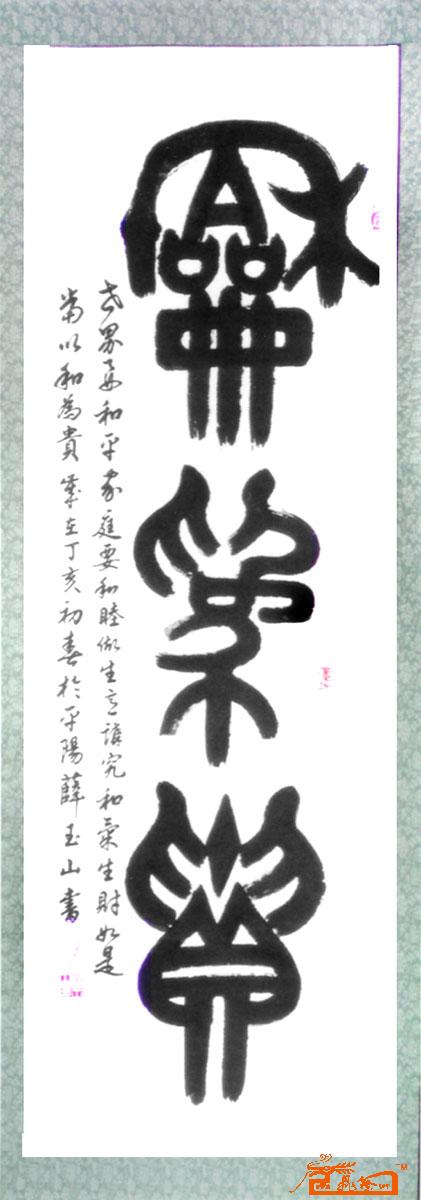 龢為貴
世界要和平家庭要和睦做生意講究和氣生財如是
當以和為貴歲在丁亥初春於平陽薛玉山書